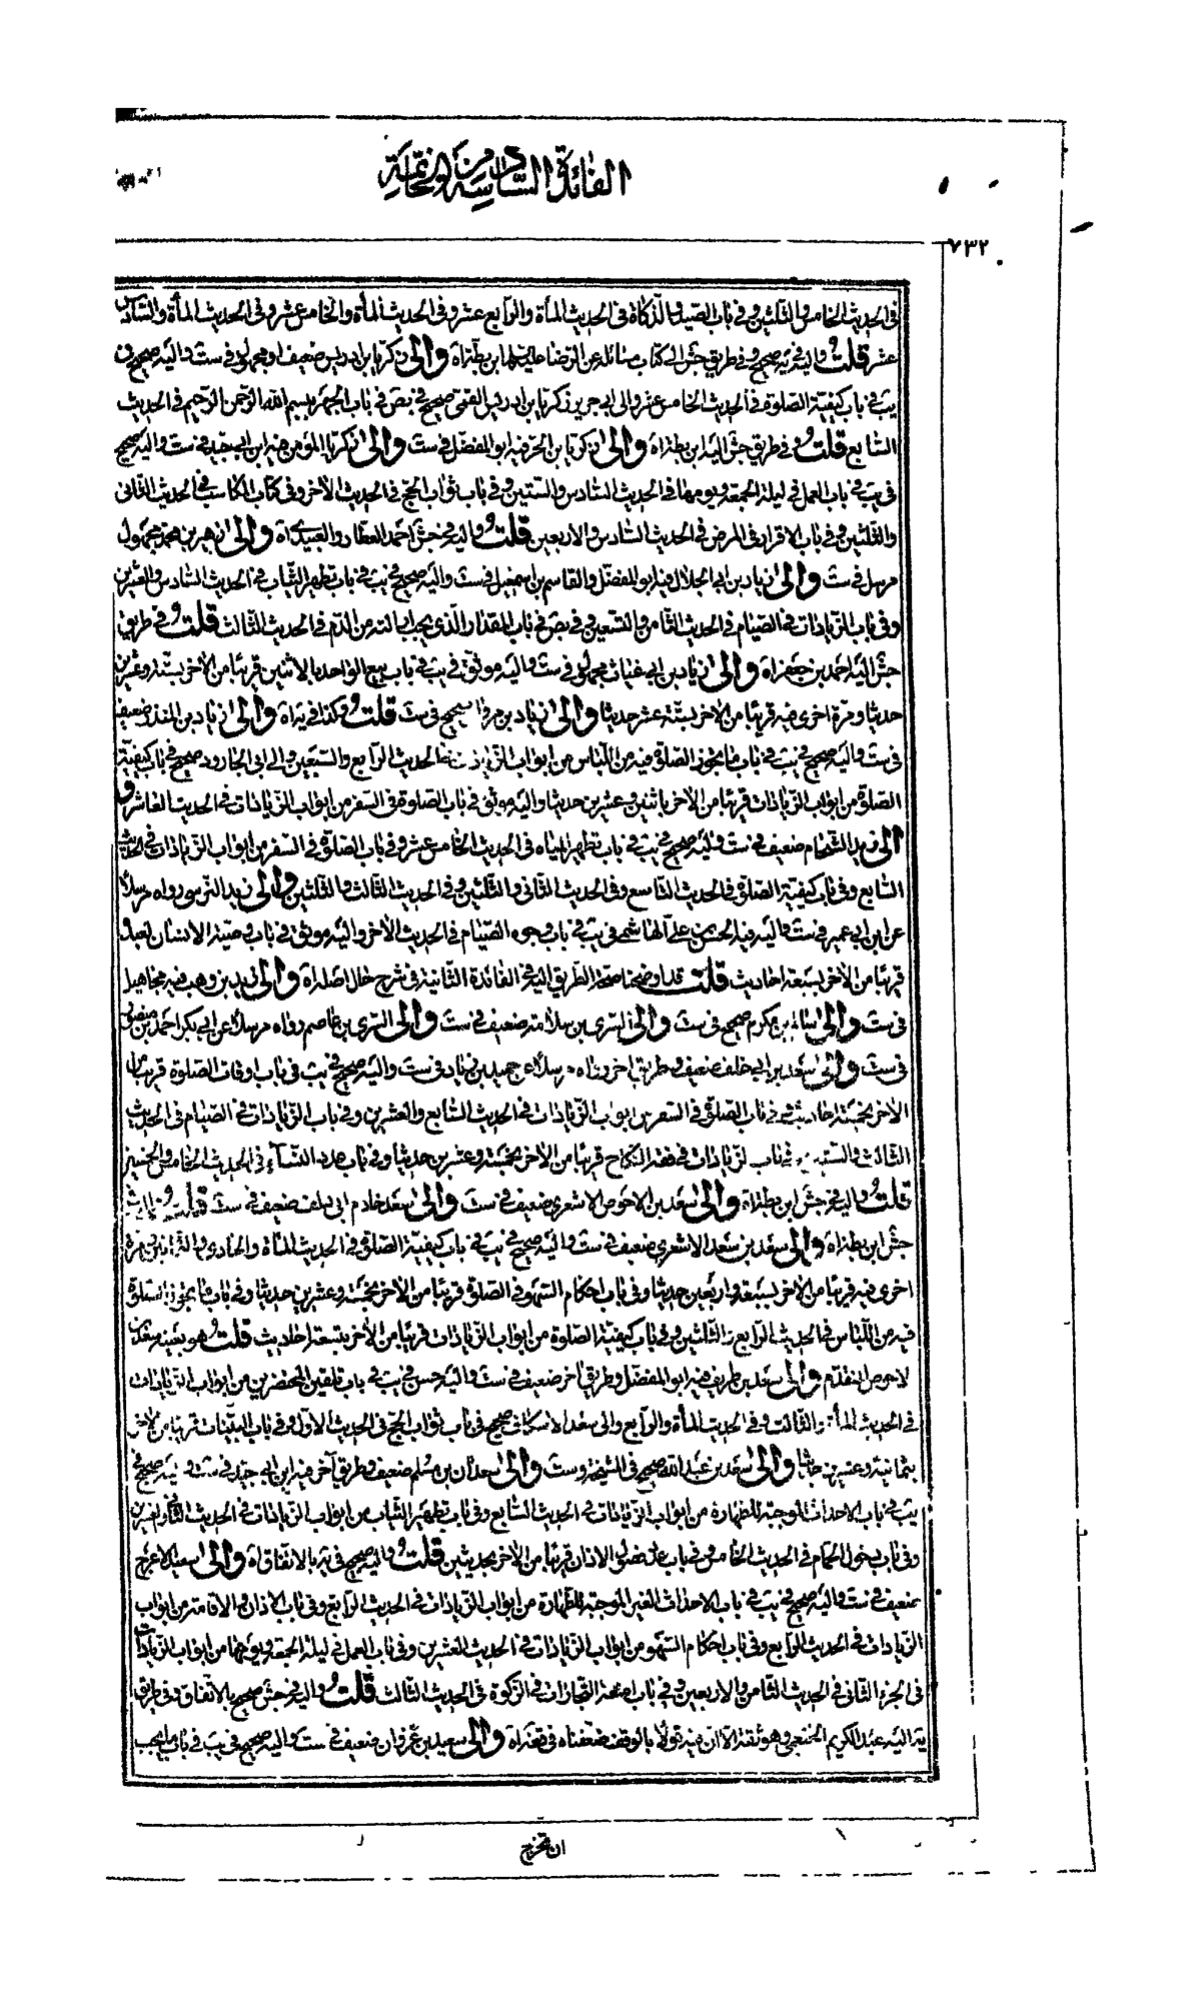 الفائدة السادسة من الخاتمة
٧٣٢
فى الحديث الخامس والثلثين وفى باب الصيد والذكاة فى الحديث المأة والرابع عشر وفى الحديث المأة والخامس عشر وفى الحديث المأة والسادس
عشر قلت واليه فى يه صحيح وفى طريق جش الى كتاب مسائله عن الرضا عليه السلم ابن بطة اه والى زكريا بن ادريس ضعيف او مجهول فى ست واليه صحيح فى
يب فى باب كيفية الصلوة فى الحديث الخامس عشر والى ابى جرير زكريا بن ادريس القمى صحيح فى بص فى باب الجهر ببسم الله الرحمن الرحيم فى الحديث
السابع قلت وفى طريق جش اليه ابن بطة اه والى زكريا بن الحر فيه ابو المفضل فى ست والى زكريا المؤمن فيه ابن ابى جيد فى ست واليه صحيح
فى يب فى باب العمل فى ليلة الجمعة ويومها فى الحديث السادس والستين وفى باب ثواب الحج فى الحديث الاخر وفى كتاب المكاسب فى الحديث الثانى
والثلثين وفى باب الاقرار فى المرض فى الحديث السادس والاربعين قلت واليه فى جش احمد العطار والعبيدى اه والى زهير بن محمد مجهول
مرسل فى ست والى زياد بن ابى الحلال فيه ابو المفضل والقاسم بن اسمعيل فى ست واليه صحيح فى يب فى باب تطهير الثياب فى الحديث السادس والعشرين
وفى باب الزيادات فى الصيام فى الحديث الثامن والتسعين وفى بص فى باب المقدار الذى يجب ازالته من الدم فى الحديث الثالث قلت وفى طريق
جش اليه احمد بن جعفر اه والى زياد بن ابى غياث مجهول فى ست واليه موثق فى يب فى باب بيع الواحد بالاثنين قريبا من الاخر بستة وعشرين
حديثا ومرة اخرى فيه قريبا من الاخر بستة عشر حديثا والى زياد بن مروان صحيح فى ست قلت وكذا فى يه اه والى زياد بن المنذر ضعيف
فى ست واليه صحيح فى يب فى باب ما يجوز الصلوة فيه من اللباس من ابواب الزيادات فى الحديث الرابع والسبعين والى ابى الجارود صحيح فى باب كيفية
الصلوة من ابواب الزيادات قريبا من الاخر باثنين وعشرين حديثا واليه موثق فى باب الصلوة فى السفر من ابواب الزيادات فى الحديث العاشر و
الى زيد الشحام ضعيف فى ست واليه صحيح فى يب فى باب تطهير المياه فى الحديث الخامس عشر وفى باب الصلوة فى السفر من ابواب الزيادات فى الحديث
السابع وفى باب كيفية الصلوة فى الحديث التاسع وفى الحديث الثانى والثلثين وفى الحديث الثالث والثلثين والى زيد النرسى رواه مرسلا
عن ابن ابى عمير فى ست واليه فيه الحسن بن على الهاشمى فى يب فى باب وجوه الصيام فى الحديث الاخر واليه موثق فى باب وصية الانسان لعبده
قريبا من الاخر بسبعة احاديث قلت قد اوضحنا صحة الطريق اليه فى الفائدة الثانية فى شرح حال اصله اه والى زيد بن وهب فيه مجاهيل
فى ست والى سالم بن مكرم صحيح فى ست والى السرى بن سلامة ضعيف فى ست والى السرى بن عاصم رواه مرسلا عن ابى بكر احمد بن منصور
فى ست والى سعد بن ابى خلف ضعيف وطريق اخر رواه مرسلا عن حميد بن زياد فى ست واليه صحيح فى يب فى باب اوقات الصلوة قريبا من
الاخر بخمسة احاديث وفى باب الصلوة فى السفر من ابواب الزيادات فى الحديث السابع والعشرين وفى باب الزيادات فى الصيام فى الحديث
الثالث والستين وفى باب الزيادات فى فقه النكاح قريبا من الاخر بخمسة وعشرين حديثا وفى باب عدد النساء فى الحديث الخامس والخمسين
قلت واليه فى جش ابن بطة اه والى سعد بن الاحوص الاشعرى ضعيف فى ست والى سعد خادم ابى دلف ضعيف فى ست قلت
جش ابن بطة اه والى سعد بن سعد الاشعرى ضعيف فى ست واليه صحيح فى يب فى باب كيفية الصلوة فى الحديث المأة والحادى والثمانين ومرة
اخرى فيه قريبا من الاخر بسبعة واربعين حديثا وفى باب احكام السهو فى الصلوة قريبا من الاخر بخمسة وعشرين حديثا وفى باب ما يجوز الصلوة
فيه من اللباس فى الحديث الرابع والثلثين وفى باب كيفية الصلوة من ابواب الزيادات قريبا من الاخر بتسعة احاديث قلت هو بعينه سعد بن
الاحوص المتقدم والى سعد بن طريف فيه ابو المفضل وطريق اخر ضعيف فى ست واليه حسن فى يب فى باب تلقين المحتضرين من ابواب الزيادات
فى الحديث المأة والثالث وفى الحديث المأة والرابع والى سعد الاسكاف صحيح فى باب ثواب الحج فى الحديث الاول وفى باب البينات قريبا من الاخر
بثمانية وعشرين حديثا والى سعد بن عبد الله صحيح فى المشيخة وست والى سعدان بن مسلم ضعيف وطريق آخر فيه ابن ابى جيد فى ست واليه صحيح فى
يب فى باب الاحداث الموجبة للطهارة من ابواب الزيادات فى الحديث السابع وفى باب تطهير الثياب من ابواب الزيادات فى الحديث الثانى والعشرين
وفى باب دخول الحمام فى الحديث الخامس وفى باب عدد فصول الاذان قريبا من الاخر بحديثين قلت واليه صحيح فى يه بالاتفاق اه والى سعيد الاعرج
ضعيف فى ست واليه صحيح فى يب فى باب الاحداث الغير الموجبة للطهارة من ابواب الزيادات فى الحديث الرابع وفى باب الاذان والاقامة من ابواب
الزيادات فى الحديث الرابع وفى باب احكام السهو من ابواب الزيادات فى الحديث العشرين وفى باب العمل فى ليلة الجمعة ويومها من ابواب الزيادات
فى الجزء الثانى فى الحديث الثامن والاربعين وفى باب امتعة التجارات فى الزكوة فى الحديث الثالث قلت واليه فى جش صحيح بالاتفاق وفى طريق
يه اليه عبد الكريم الخثعمى وهو ثقة الا ان فيه قولا بالوقف ضعفناه فى قعد اه والى سعيد بن غزوان ضعيف فى ست واليه صحيح فى يب فى باب ما يجب
ان تخرج